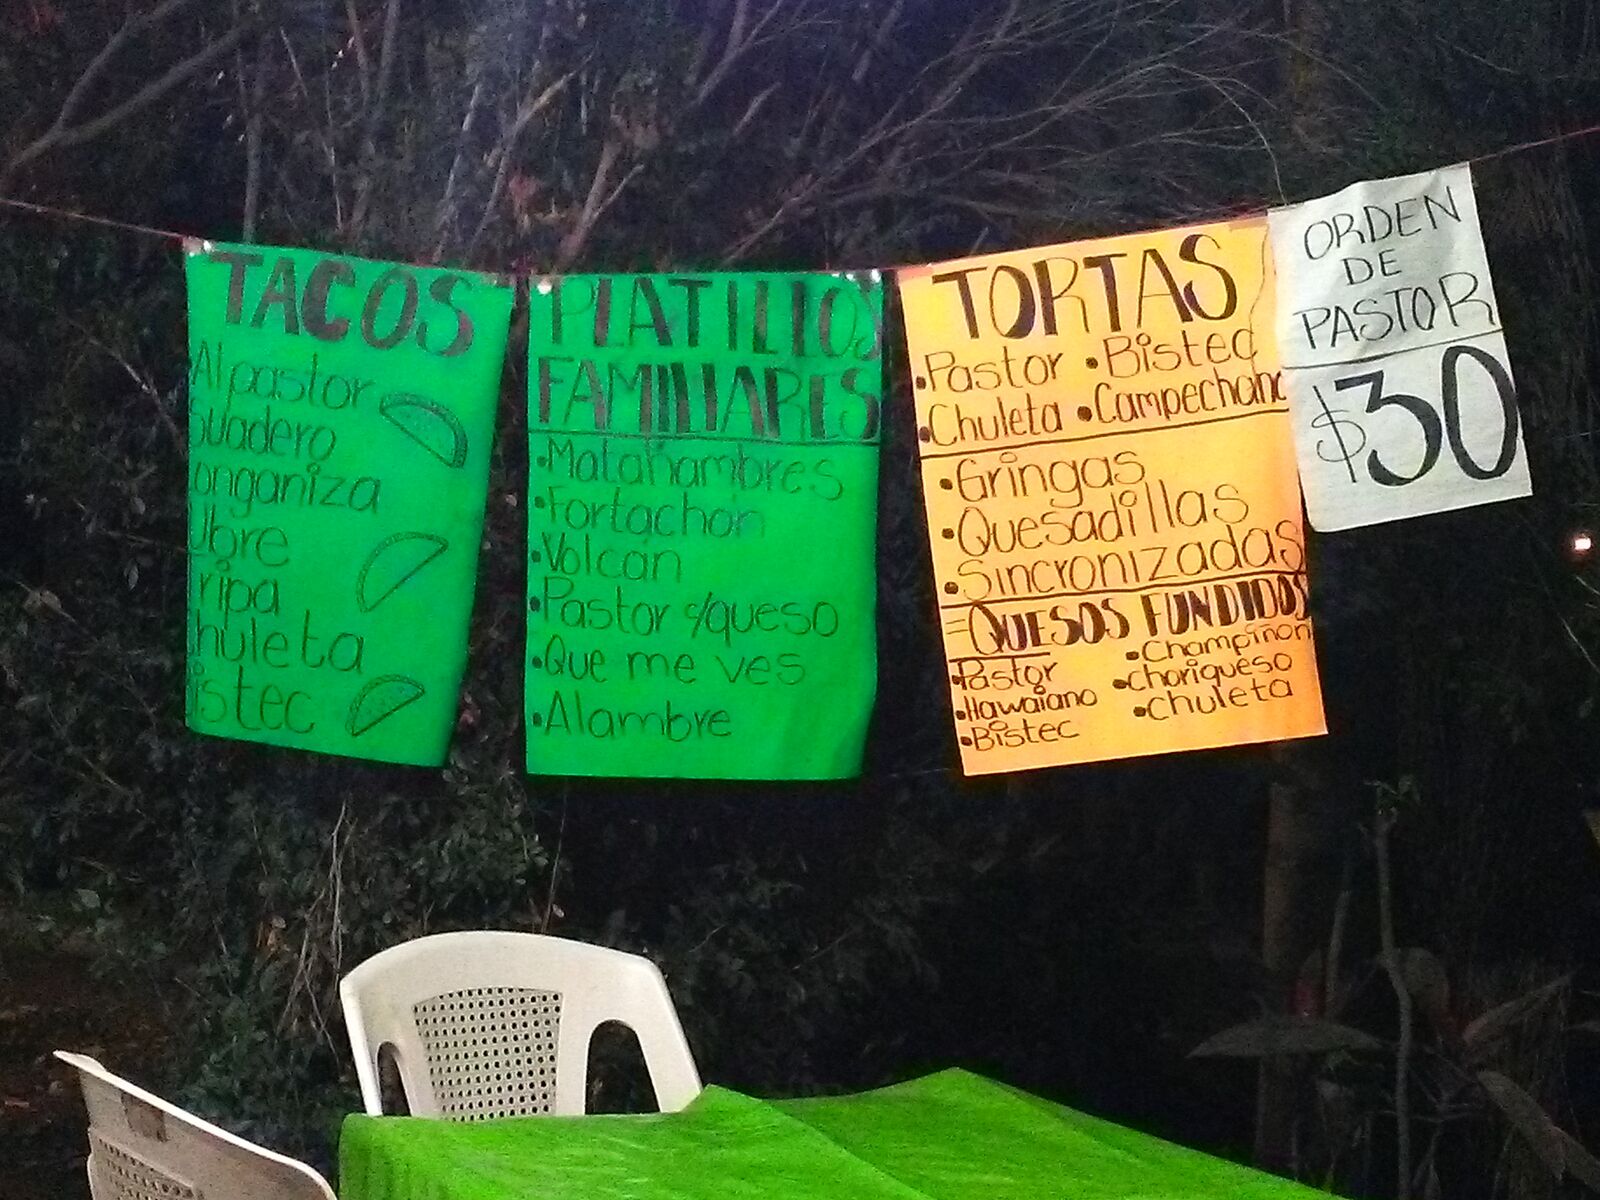 TACOS
Al pastor
Suadero
Longaniza
Ubre
Tripa
Chuleta
Bistec
PLATILLOS
FAMILIARES
•Matahambres
•Fortachon
•Volcan
•Pastor c/queso
•Que me ves
•Alambre
TORTAS
•Pastor •Bistec
•Chuleta •Campechana
•Gringas
•Quesadillas
•Sincronizadas
=QUESOS FUNDIDOS
•Pastor •Champiñon
•Hawaiano •choriqueso
•Bistec •chuleta
ORDEN
DE
PASTOR
$30